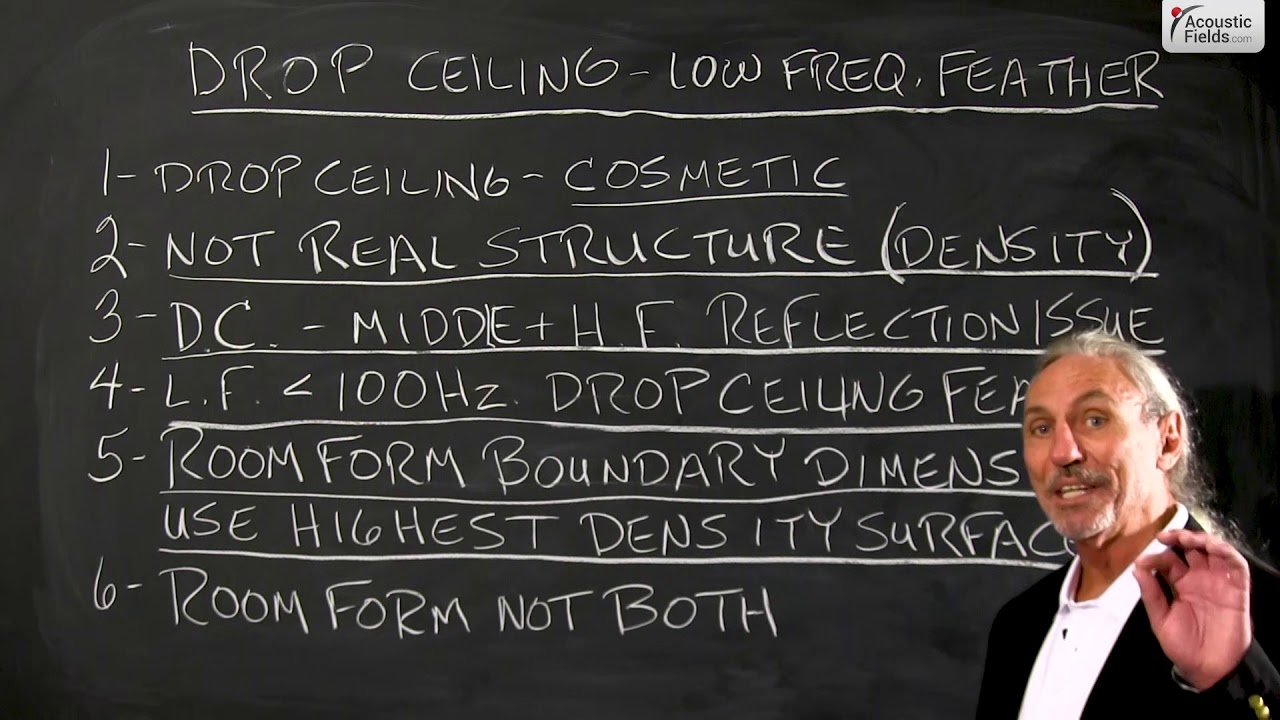 Acoustic
Fields.com
DROP CEILING - LOW FREQ. FEATHER
1- DROP CEILING - COSMETIC
2- NOT REAL STRUCTURE (DENSITY)
3- D.C. - MIDDLE + H.F. REFLECTION ISSUE
4- L.F. < 100Hz. DROP CEILING
5- ROOM FORM BOUNDARY
USE HIGHEST DENSITY
6- ROOM FORM NOT BOTH